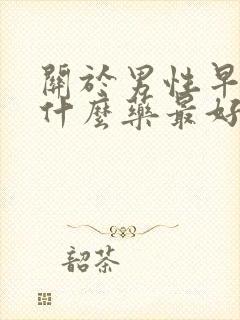 關於男性早
什麼藥最好
韶茶